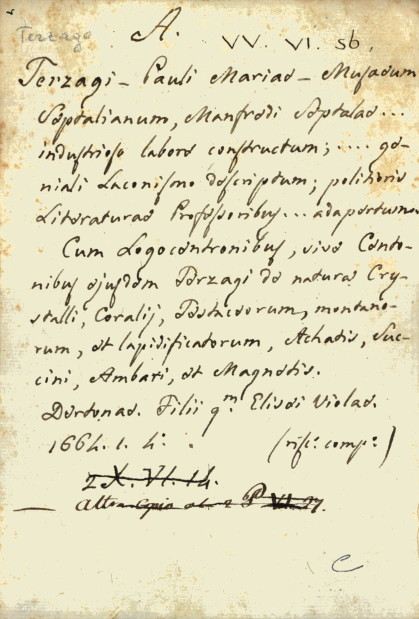 Terzago
A.
VV. VI. sb,
Terzagi - Pauli Mariae - Musaeum
Septalianum, Manfredi Septalae...
industrioso labore constructum; .... ge-
niali Laconismo descriptum; politioris
Literaturae Professoribus... adapertum.
Cum Logocentronibus, sive Cento-
nibus ejusdem Terzagi de natura Cry-
stalli, Coralij, Testaceorum, montano-
rum, et lapidificatorum, Achatis, Suc-
cini, Ambari, et Magnetis.
Dertonae. Filii qm. Elisei Violae.
1664. 1. 4.º (rist.º comp.º)
2 X. VI. 14.
VI. 27.
C